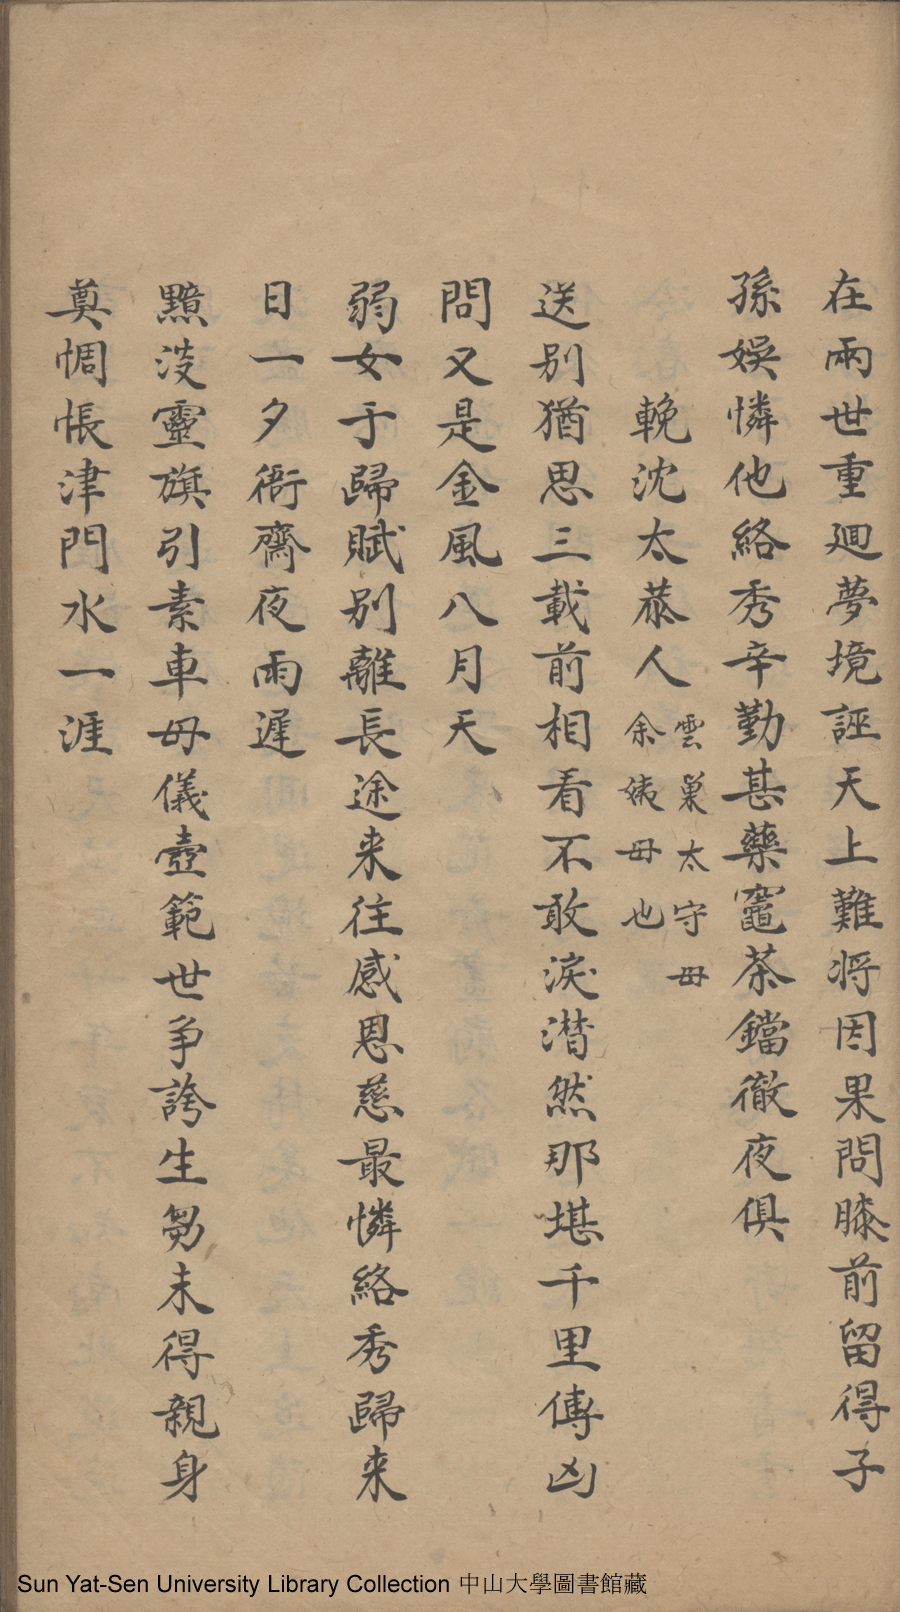 在兩世重迴夢境誣天上難将因果問膝前留得子
孫娱憐他絡秀辛勤甚藥竈茶鐺徹夜俱
輓沈太恭人
雲巢太守母
余姨母也
送别猶思三載前相看不敢淚潸然那堪千里傳凶
問又是金風八月天
弱女于歸賦别離長途来往感恩慈最憐絡秀歸来
日一夕衙齋夜雨遲
黯淡靈旗引素車母儀壼範世争誇生芻未得親身
奠惆悵津門水一涯
Sun Yat-Sen University Library Collection 中山大學圖書館藏